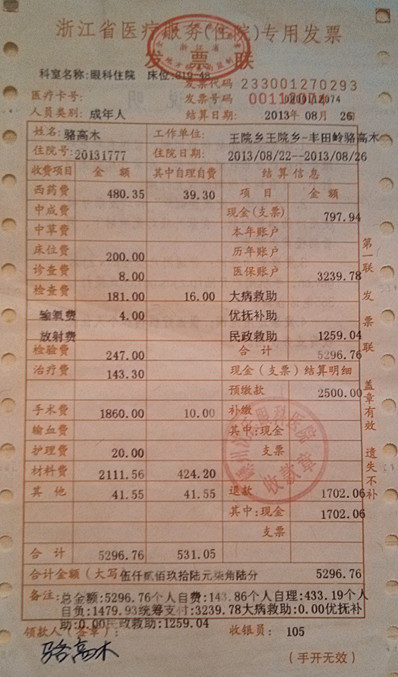 浙江省医疗服务(住院)专用发票
发 票 联
科室名称:眼科住院 床位:819-48
发票代码 233001270293
医疗卡号: 发票号码
人员类别:成年人 结算日期: 2013年 08月 26日
姓名:骆高木 工作单位: 王院乡王院乡-丰田岭骆高木
住院号:20131777 住院日期: 2013/08/22--2013/08/26
收费项目 金 额 其中自理自费 结 算 信 息
西药费 480.35 39.30 项 目 金 额
中成费 现金(支票) 797.94
中草费 本年账户
床位费 200.00 历年账户
诊查费 8.00 医保账户 3239.78
检查费 181.00 16.00 大病救助
输氧费 4.00 优抚补助
放射费 民政救助 1259.04
检验费 247.00 合 计 5296.76
治疗费 143.30 现金(支票)结算明细
预缴款 2500.00
手术费 1860.00 10.00 补缴
输血费 其中:现金
护理费 20.00 支票
材料费 2111.56 424.20
其 他 41.55 41.55 退款 1702.06
其中:现金 1702.06
支票
合 计 5296.76 531.05
合计金额(大写) 伍仟贰佰玖拾陆元柒角陆分 5296.76
备注: 总金额:5296.76个人自费:143.86个人自理:433.19个人
自负:1479.93统筹支付:3239.78大病救助:0.00优抚补
助:0.00民政救助:1259.04
领款人(签章): 收银员: 105
骆高木
(手开无效)
第一联 发票联 盖章有效 遗失不补
收款章